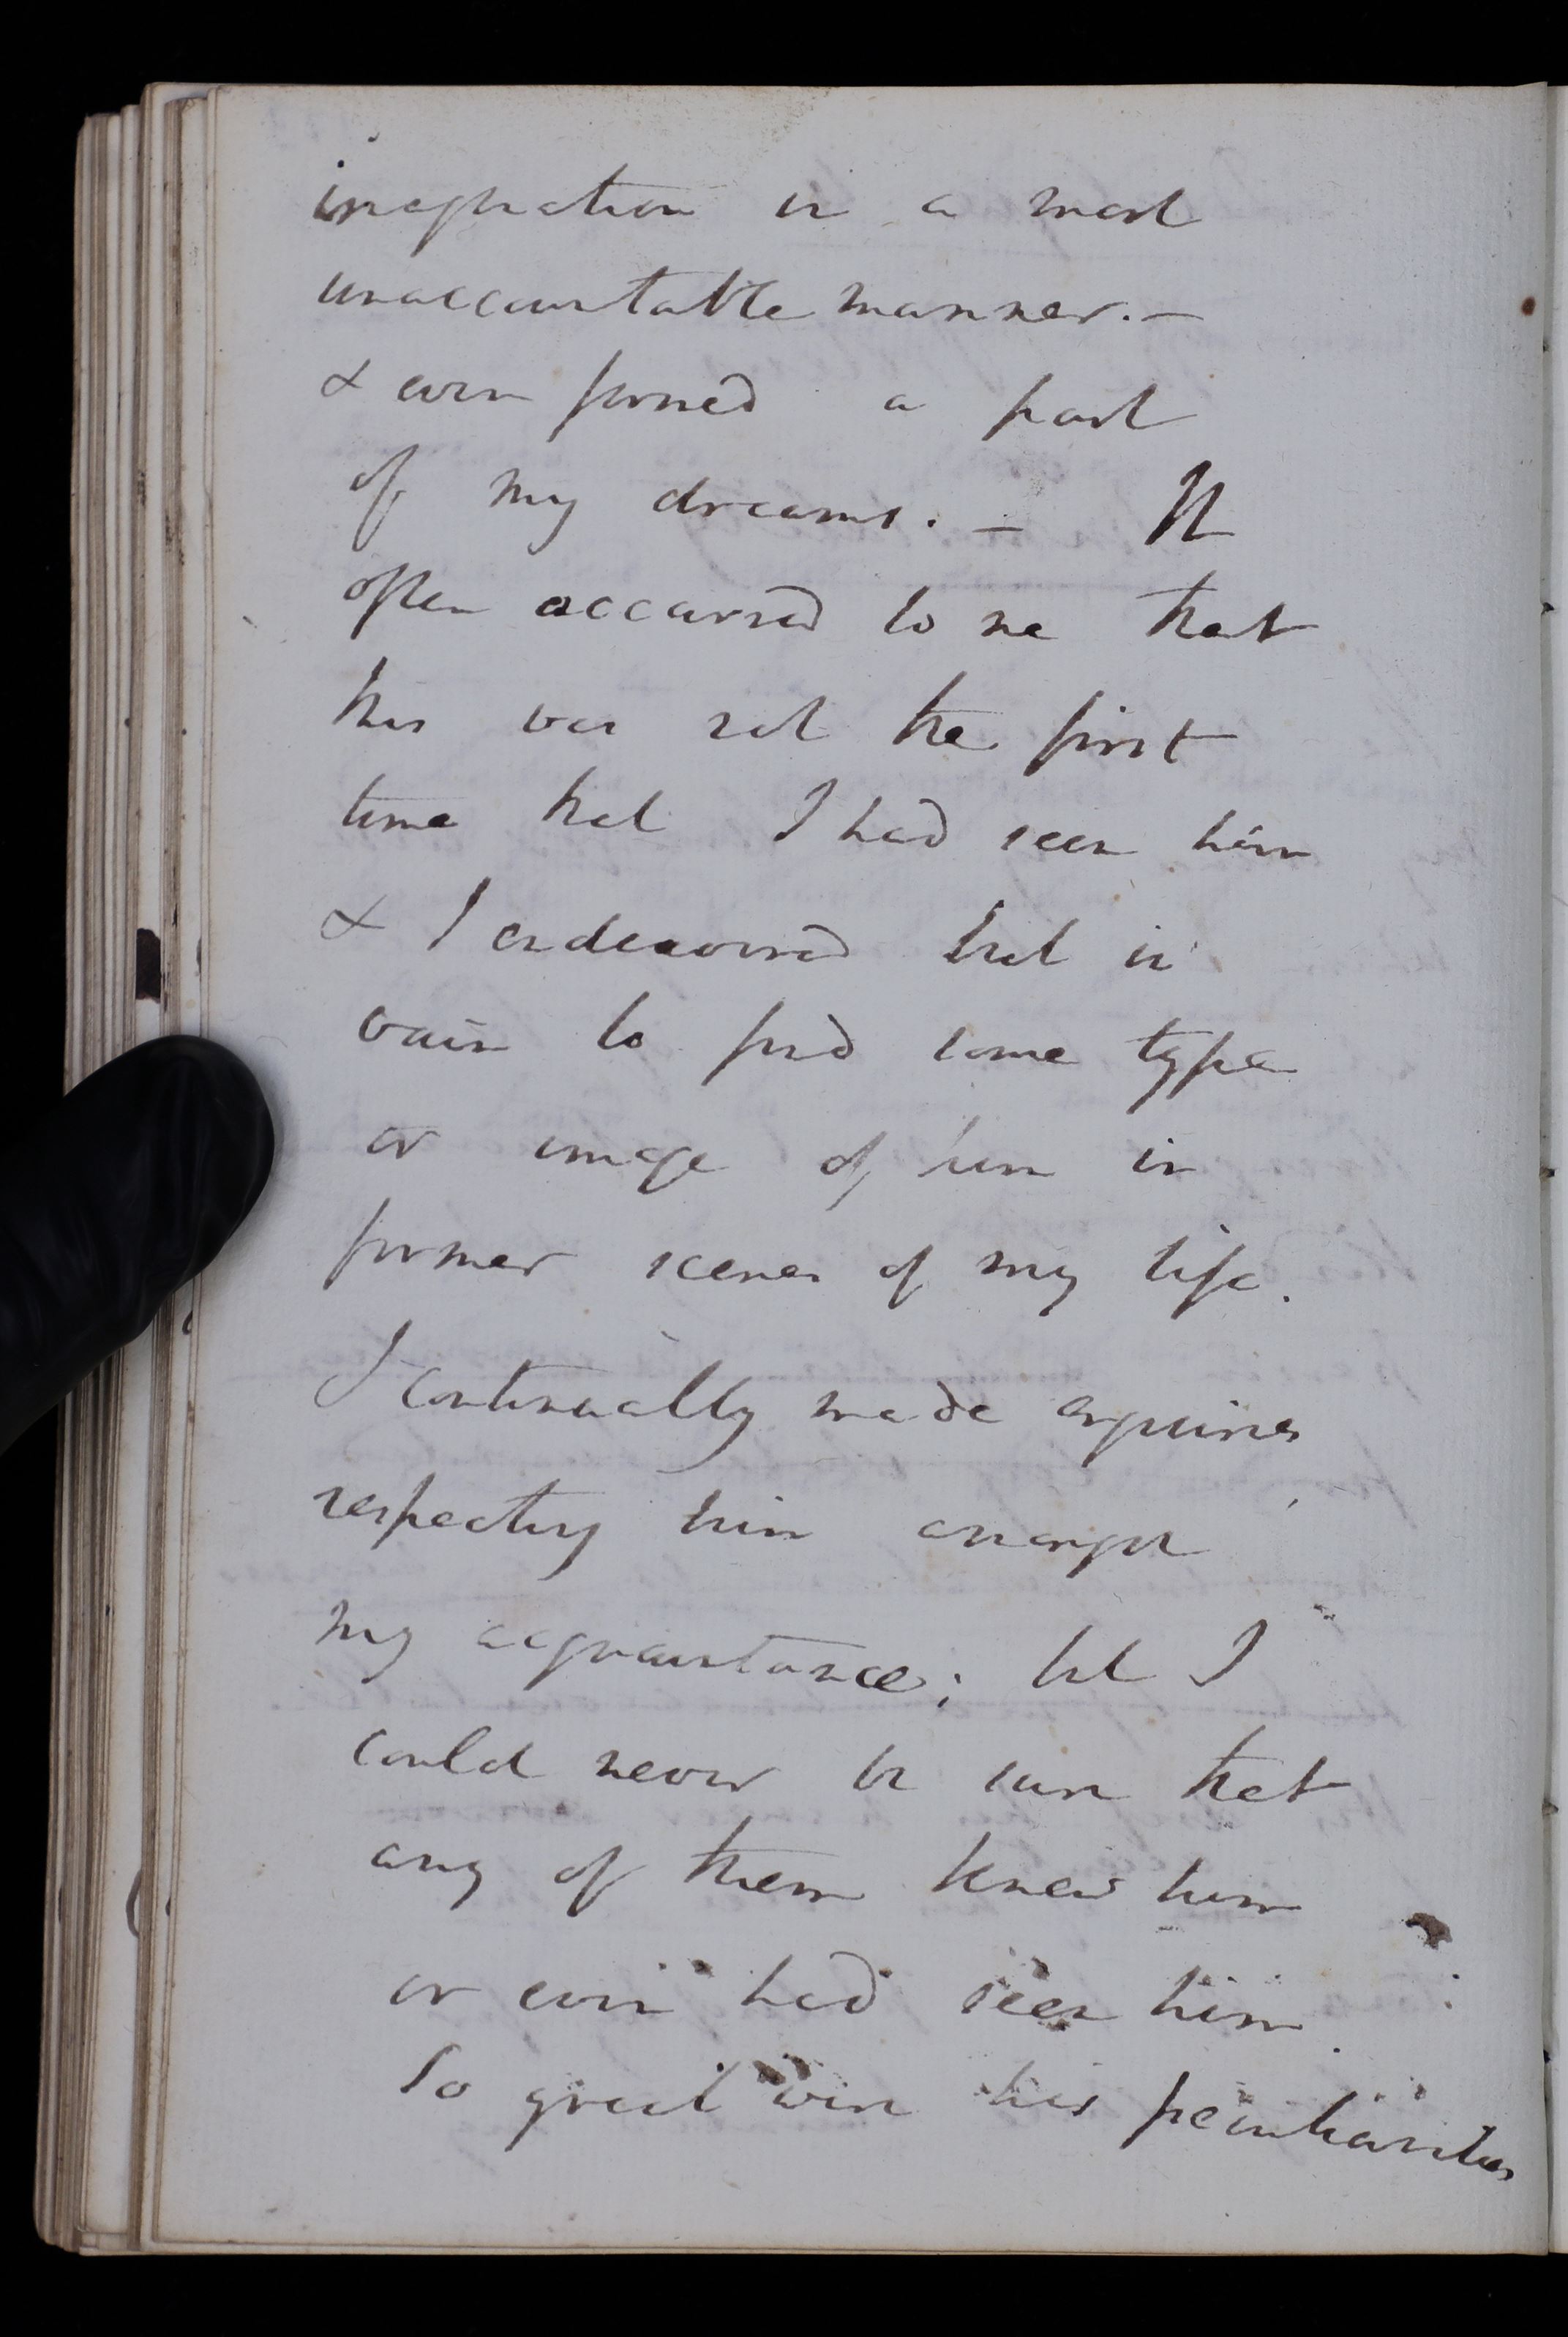 imagination in a most
unaccountable manner. –
& even formed a part
of my dreams. – It
often occurred to me that
this was not the first
time that I had seen him
& I endeavoured but in
vain to find some type
or image of him in
former scenes of my life.
I continually made enquiries
respecting him amongst
my acquaintance; but I
could never be sure that
any of them knew him
or even had seen him.
So great were his peculiarities